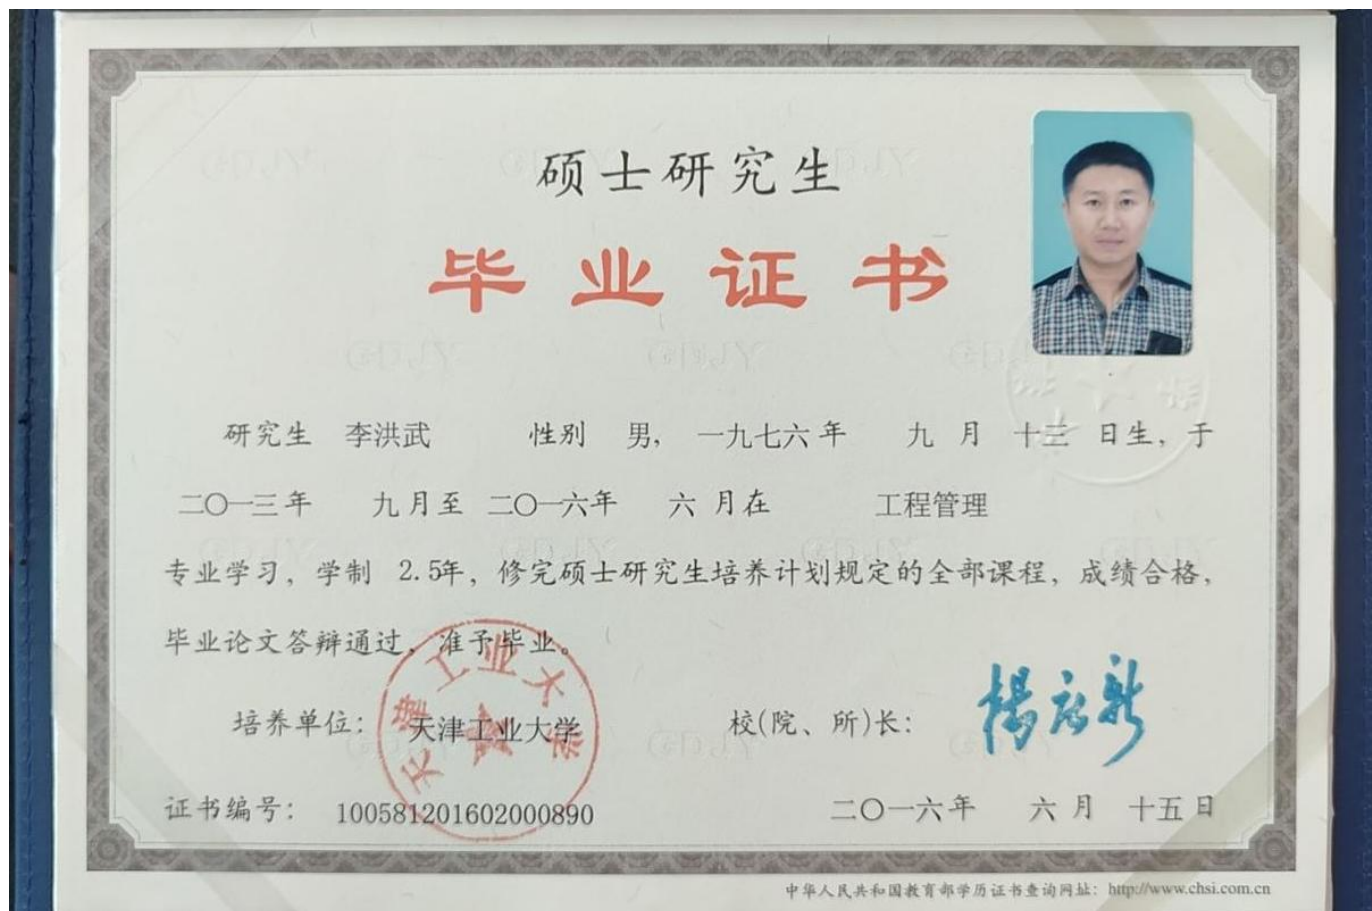 硕士研究生
毕业证书
研究生 李洪武 性别 男, 一九七六年 九 月 十三 日生, 于
二〇一三年 九月至 二〇一六年 六 月在 工程管理
专业学习, 学制 2.5年, 修完硕士研究生培养计划规定的全部课程, 成绩合格,
毕业论文答辩通过, 准予毕业。
培养单位: 天津工业大学 校(院、所)长: 楊庆新
天津工业大学
证书编号: 100581201602000890 二〇一六年 六 月 十五 日
中华人民共和国教育部学历证书查询网址: http://www.chsi.com.cn